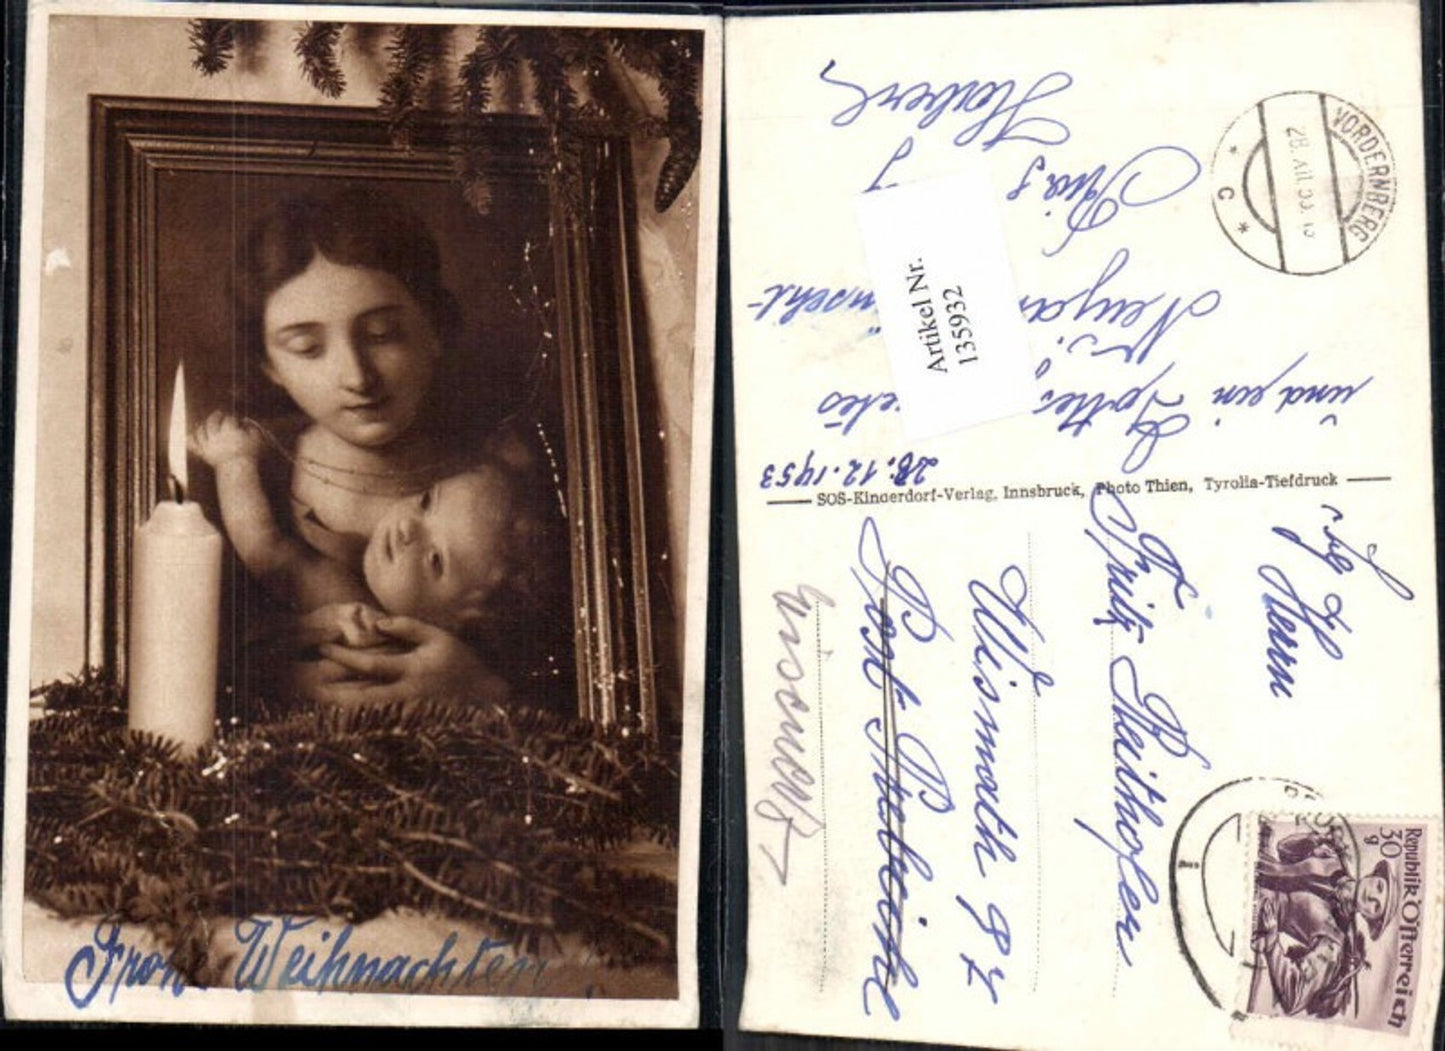 Frohe Weihnachten!
28.12.1953
und ein
Gottes
Neujar
wünscht
Haberl
Artikel Nr.
135932
SOS-Kinderdorf-Verlag, Innsbruck, Photo Thien, Tyrolia-Tiefdruck
VORDERNBERG
28.XII.53.18
* C *
Herrn
Fritz Reithofer
Wismath 97
Post
Republik Österreich
30 g